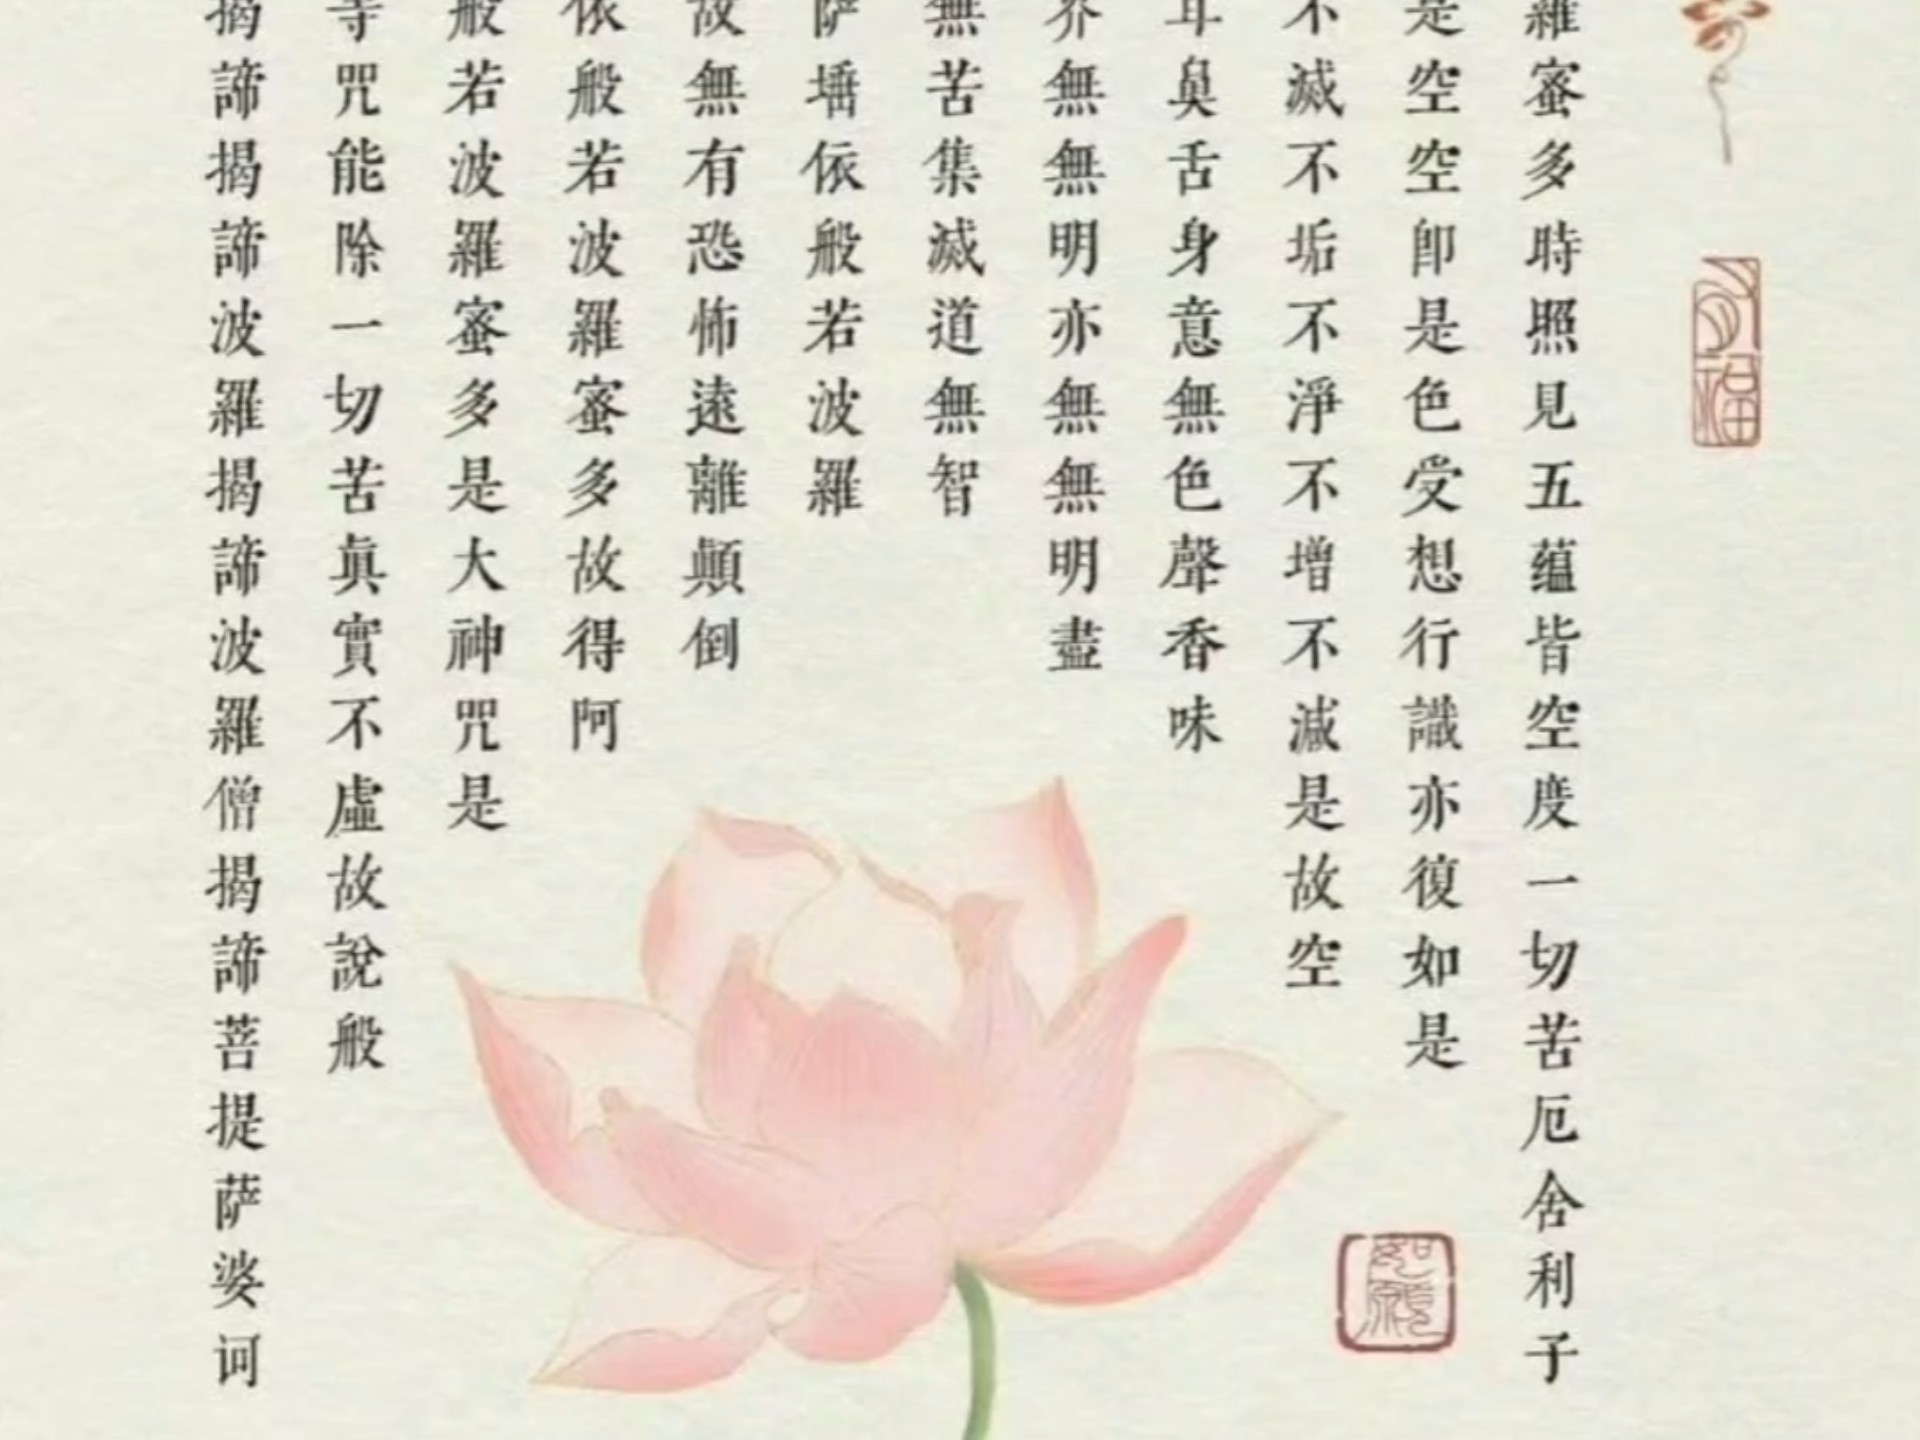 有福
羅蜜多時照見五蕴皆空度一切苦厄舍利子
是空空卽是色受想行識亦復如是
不滅不垢不淨不增不減是故空
耳鼻舌身意無色聲香味
界無無明亦無無明盡
無苦集滅道無智
萨埵依般若波羅
故無有恐怖遠離顛倒
依般若波羅蜜多故得阿
般若波羅蜜多是大神咒是
等咒能除一切苦眞實不虛故說般
揭諦揭諦波羅揭諦波羅僧揭諦菩提萨婆诃
如願